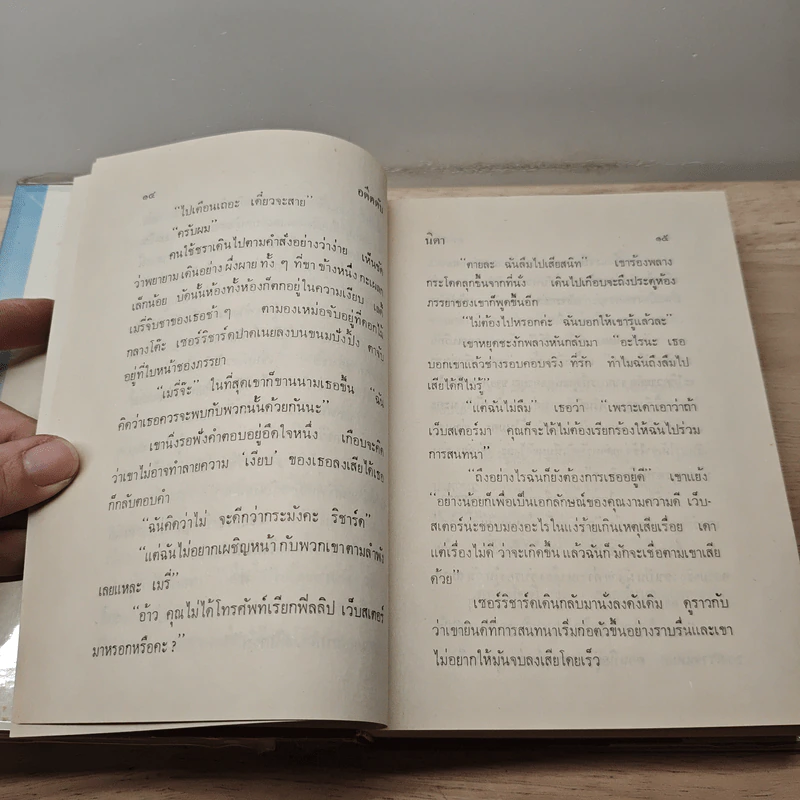 ๑๔ อดีตดับ
“ไปเตือนเถอะ เดี๋ยวจะสาย”
“ครับผม”
คนใช้ชราเดินไปตามคำสั่งอย่างว่าง่าย เห็นชัด
ว่าพยายามเดินอย่างผึ่งผาย ทั้ง ๆ ที่ขาข้างหนึ่งกะเผลก
เล็กน้อย บัดนั้นห้องทั้งห้องก็ตกอยู่ในความเงียบ เลดี้
เมรี่จิบชาของเธอช้า ๆ ตามองเหม่อจับอยู่ที่ดอกไม้
กลางโต๊ะ เซอร์ริชาร์ดปาดเนยลงบนขนมปังปิ้ง ตาจับ
อยู่ที่ใบหน้าของภรรยา
“เมรี่จ๊ะ” ในที่สุดเขาก็ขานนามเธอขึ้น “ฉัน
คิดว่าเธอควรจะพบกับพวกนั้นด้วยกันนะ”
เขานิ่งรอฟังคำตอบอยู่อึดใจหนึ่ง เกือบจะคิด
ว่าเขาไม่อาจทำลายความ ‘เงียบ’ ของเธอลงเสียได้เธอ
ก็กลับตอบคำ
“ฉันคิดว่าไม่ จะดีกว่ากระมังคะ ริชาร์ด”
“แต่ฉันไม่อยากเผชิญหน้ากับพวกเขาตามลำพัง
เลยแหละ เมรี่”
“อ้าว คุณไม่ได้โทรศัพท์เรียกฟิลลิป เว็บสเตอร์
มาหรอกหรือคะ ?”
นิดา ๑๕
“ตายละ ฉันลืมไปเสียสนิท” เขาร้องพลาง
กระโดดลุกขึ้นจากที่นั่ง เดินไปเกือบจะถึงประตูห้อง
ภรรยาของเขาก็พูดขึ้นอีก
“ไม่ต้องไปหรอกค่ะ ฉันบอกให้เขารู้แล้วละ”
เขาหยุดชะงักพลางหันกลับมา “อะไรนะ เธอ
บอกเขาแล้วช่างรอบคอบจริง ที่รัก ทำไมฉันถึงลืมไป
เสียได้ก็ไม่รู้”
“แต่ฉันไม่ลืม” เธอว่า “เพราะเดาเอาว่าถ้า
เว็บสเตอร์มา คุณก็จะได้ไม่ต้องเรียกร้องให้ฉันไปร่วม
การสนทนา”
“ถึงอย่างไรฉันก็ยังต้องการเธออยู่ดี” เขาแย้ง
“อย่างน้อยก็เพื่อเป็นเอกลักษณ์ของคุณงามความดี เว็บ-
สเตอร์น่ะชอบมองอะไรในแง่ร้ายเกินเหตุเสียเรื่อย เดา
แต่เรื่องไม่ดี ว่าจะเกิดขึ้น แล้วฉันก็ มักจะเชื่อตามเขาเสีย
ด้วย”
เซอร์ริชาร์ดเดินกลับมานั่งลงดังเดิม ดูราวกับ
ว่าเขายินดีที่การสนทนาเริ่มก่อตัวขึ้นอย่างราบรื่นและเขา
ไม่อยากให้มันจบลงเสียโดยเร็ว